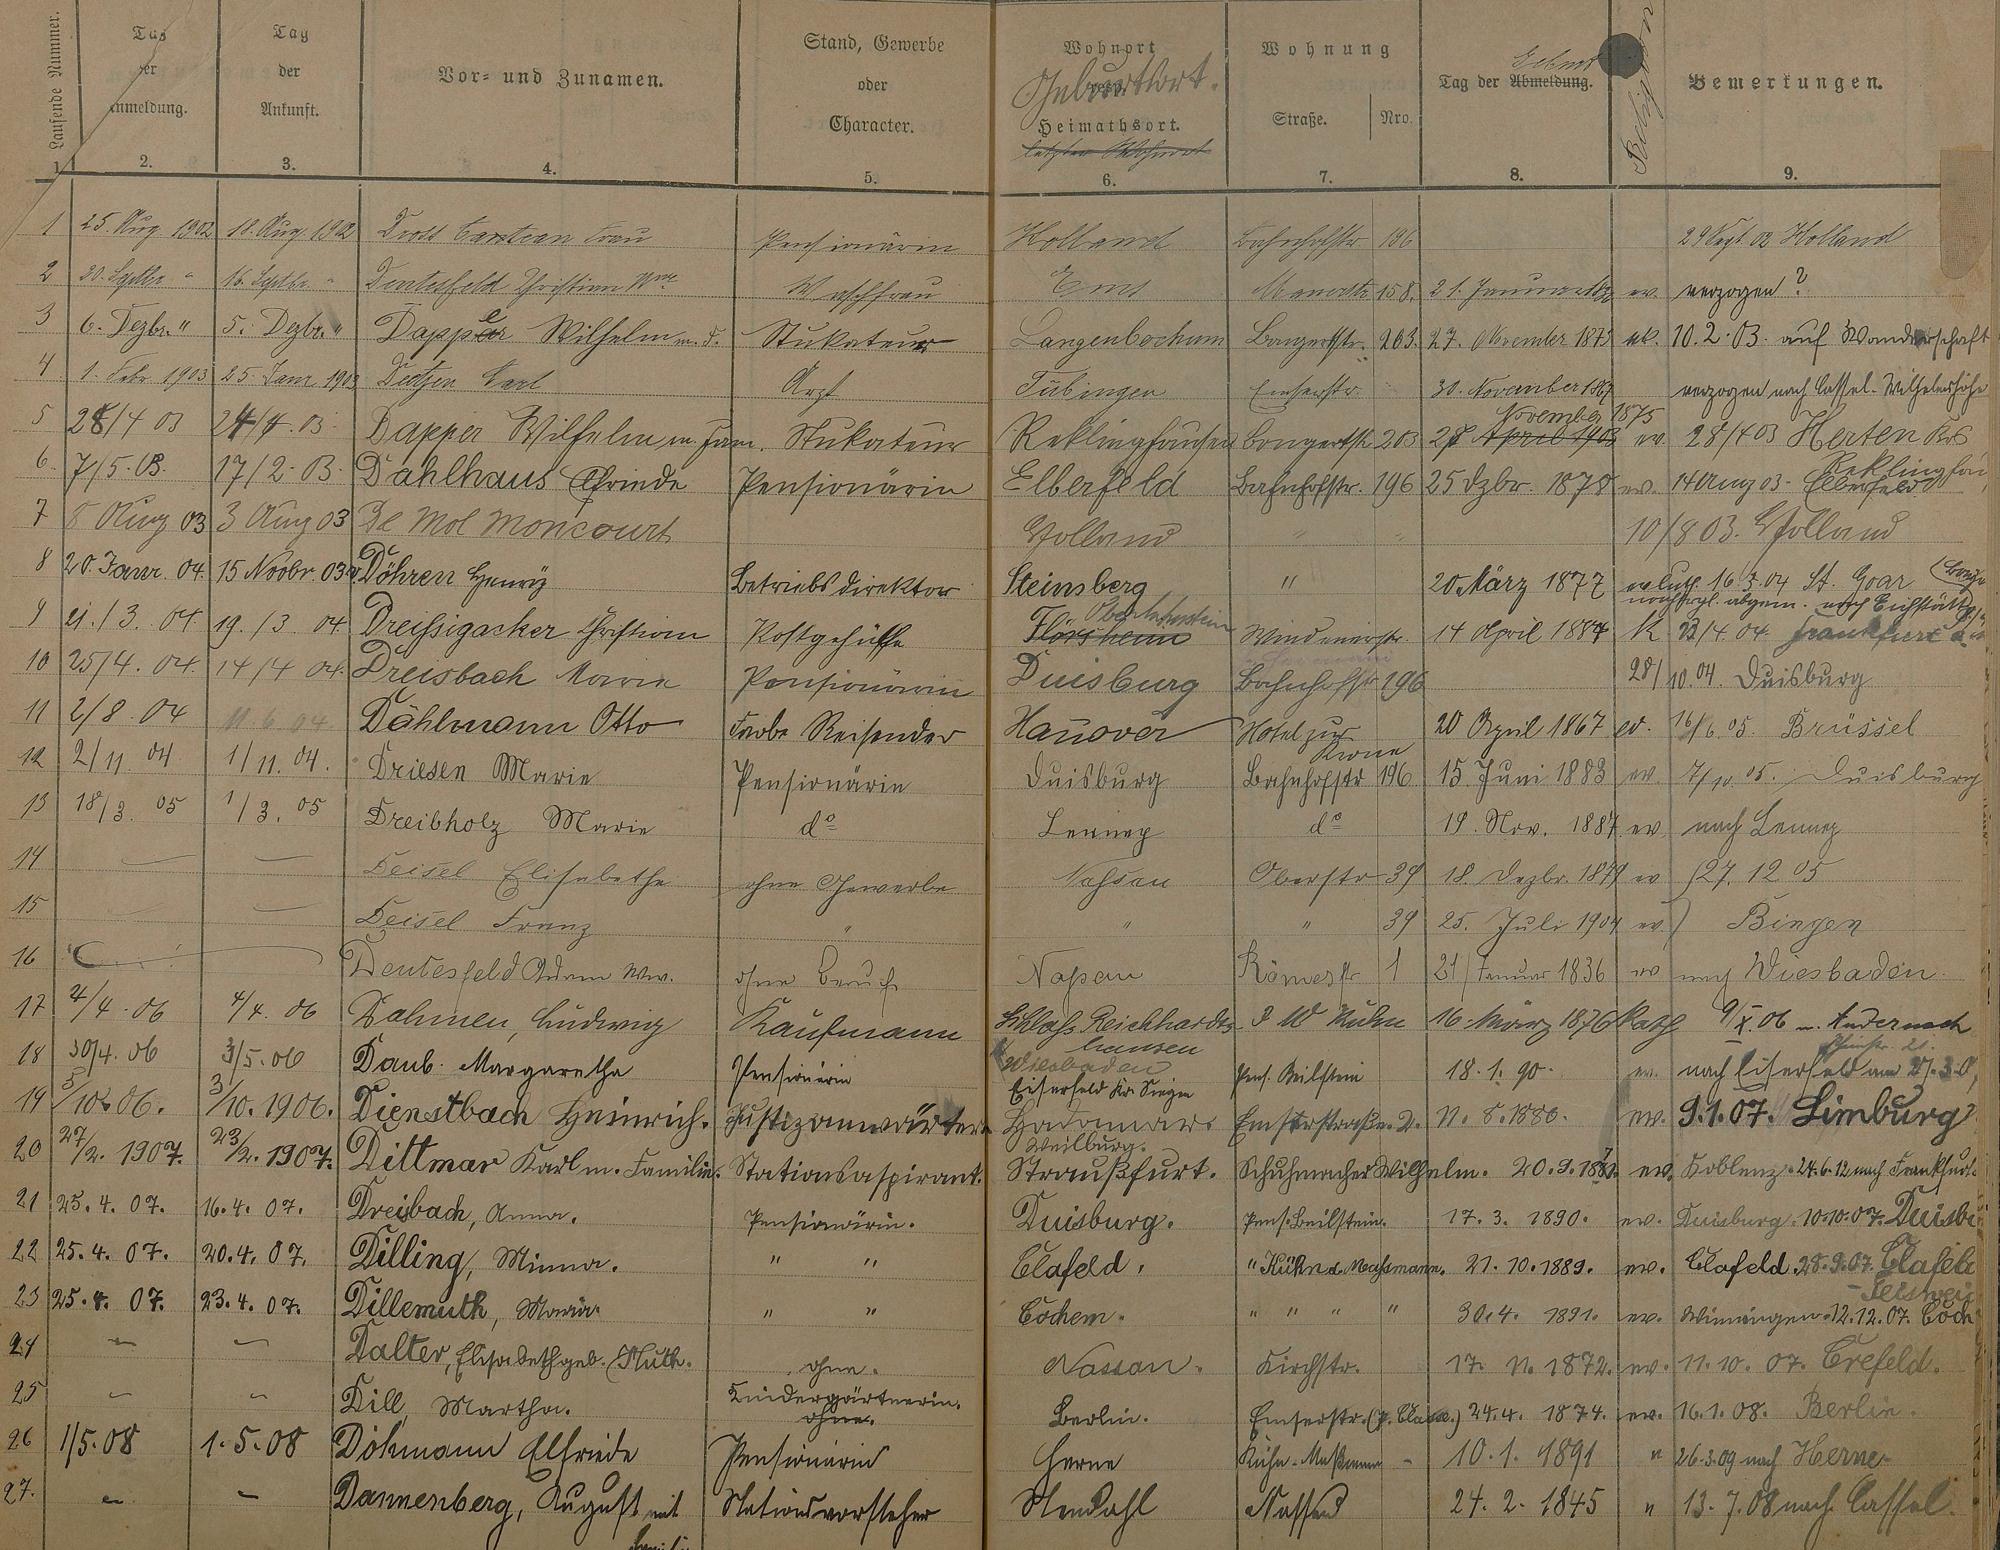 Laufende Nummer. Tag der Anmeldung. Tag der Ankunft. Vor- und Zunamen. Stand, Gewerbe oder Character. Wohnort Geburtsort. Heimathsort. letzter Wohnort Wohnung Straße. Nro. Tag der Abmeldung. Geburt Religion Bemerkungen.
1 2. 3. 4. 5. 6. 7. 8. 9.
1 25. Aug 1902 18. Aug. 1902 Frau Pensionärin Holland Bahnhofstr 196 29 Sept. 02 Holland
2 20. Septbr " 16. Septbr. " Dentesfeld Christian Wwe Waschfrau Ems 158. 21. Januar ev. verzogen?
3 6. Dezbr. " 5. Dezbr. " Dapper Wilhelm m. F. Stukateur Langenbochum Bongertstr. 203. 27. November 1875 ev. 10.2.03. auf Wanderschaft
4 1. Febr 1903 25. Janr 1903 Dietzen Carl Arzt Tübingen Emserstr. 30. November 1867 verzogen nach Cassel-Wilhelmshöhe
5 28/4 03 24/4.03. Dapper Wilhelm m. Fam. Stukateur Reklinghausen Bongertstr. 203 27 April 1903 November 1875 ev. 28/4 03 Herten Krs Reklinghau
6. 7/5.03. 17/2.03. Dahlhaus Pensionärin Elberfeld Bahnhofstr. 196 25 Dzbr. 1878 ev. 14 Aug 03. Elberfeld
7 8 Aug 03 3 Aug 03 De Mol Moncourt Holland " " 10/8 03. Holland
8 20. Janr. 04. 15 Novbr. 03 v. Döhren Henry Betriebsdirektor Steinsberg " 20. März 1877 16.3.04 St. Goar
9 21./3. 04 19./3 04. Dreißigacker Christian Postgehülfe Flörsheim Oberlahnstein 14 April 1887 K 23/4 04. Frankfurt a.
10 25/4. 04. 14/4 04. Dreisbach Maria Pensionärin Duisburg Bahnhofstr 196 28/10.04. Duisburg
11 2/8. 04 11.6.04. Dählmann Otto Farbe Reisender Hanover Hotel zur Krone 20 April 1867 ev. 16/6.05. Brüssel
12 2/11. 04 1/11.04. Driesen Marie Pensionärin Duisburg Bahnhofstr 196 15. Juni 1883 ev. 7/10.05. Duisburg
13 18/3. 05 1/3. 05 Dreibholz Marie do Lennep do 19. Nov. 1887 ev. nach Lennep
14 — — Deisel Elisabethe ohne Gewerbe Nassau Oberstr 39 18. Dezbr. 1879 ev 27.12 05
15 — — Deisel Franz " " " 39 25. Juli 1904 ev. Bingen
16 Dentesfeld Adam Ww. ohne Beruf Nassau Römerstr 1 21 Januar 1836 ev Wiesbaden
17 4/4.06 4/4. 06 Dahmen, Ludwig Kaufmann Schloß Reichhardtshausen J W Kuhn 16. März 1876 kath 9/X.06 n. Andernach
18 30/4.06 3/5.06 Daub. Margaretha Pensionärin Wiesbaden Eiserfeld Kr. Siegen Pens. Beilstein 18.1.90. ev. nach Eiserfeld am
19 5/10.06. 3/10.1906. Dienstbach Heinrich. Justizanwärter. Hadamar. Weilburg. Emserstraße. 2. 11.8.1886. ev. 9.1.07. Limburg
20 27/2. 1907. 23/2.1907. Dittmar Karl m. Familie. Stationsaspirant. Straußfurt. Schuhmacher Wilhelm. 20.9.1881. ev. Koblenz. 24.6.12 nach Frankfurt.
21 25.4.07. 16.4.07. Dreisbach, Anna. Pensionärin. Duisburg. Pens. Beilstein. 17.3. 1890. ev. Duisburg. 10.10.07. Duisb
22 25.4.07. 20.4.07. Dilling, Minna. " " Clafeld. " Kühn u. Maßmann. 21.10.1889. ev. Clafeld. 28.9.07. Clafeld - Geisweid
23 25.4.07. 23.4.07. Dillemuth, Maria. " " Cochem. " " " " 30.4. 1891. ev. Winningen. 12.12.07. Coch
24 — — Dalter, Elisabeth geb. Muth. ohne. Nassau. Kirchstr. 17. 11. 1872. ev. 11.10. 07. Crefeld.
25 — — Dill, Martha. Kindergärtnerin. ohne. Berlin. Emserstr. 24.4. 1874. ev. 16.1.08. Berlin.
26 1/5.08 1.5.08 Döhmann Elfriede Pensionärin Herne Kühn-Maßmann - 10.1.1891 " 26.3.09 nach Herne
27. — — Dannenberg, August mit Familie Stationsvorsteher Stendahl Nassau 24.2.1845 " 13.7.08 nach Cassel.